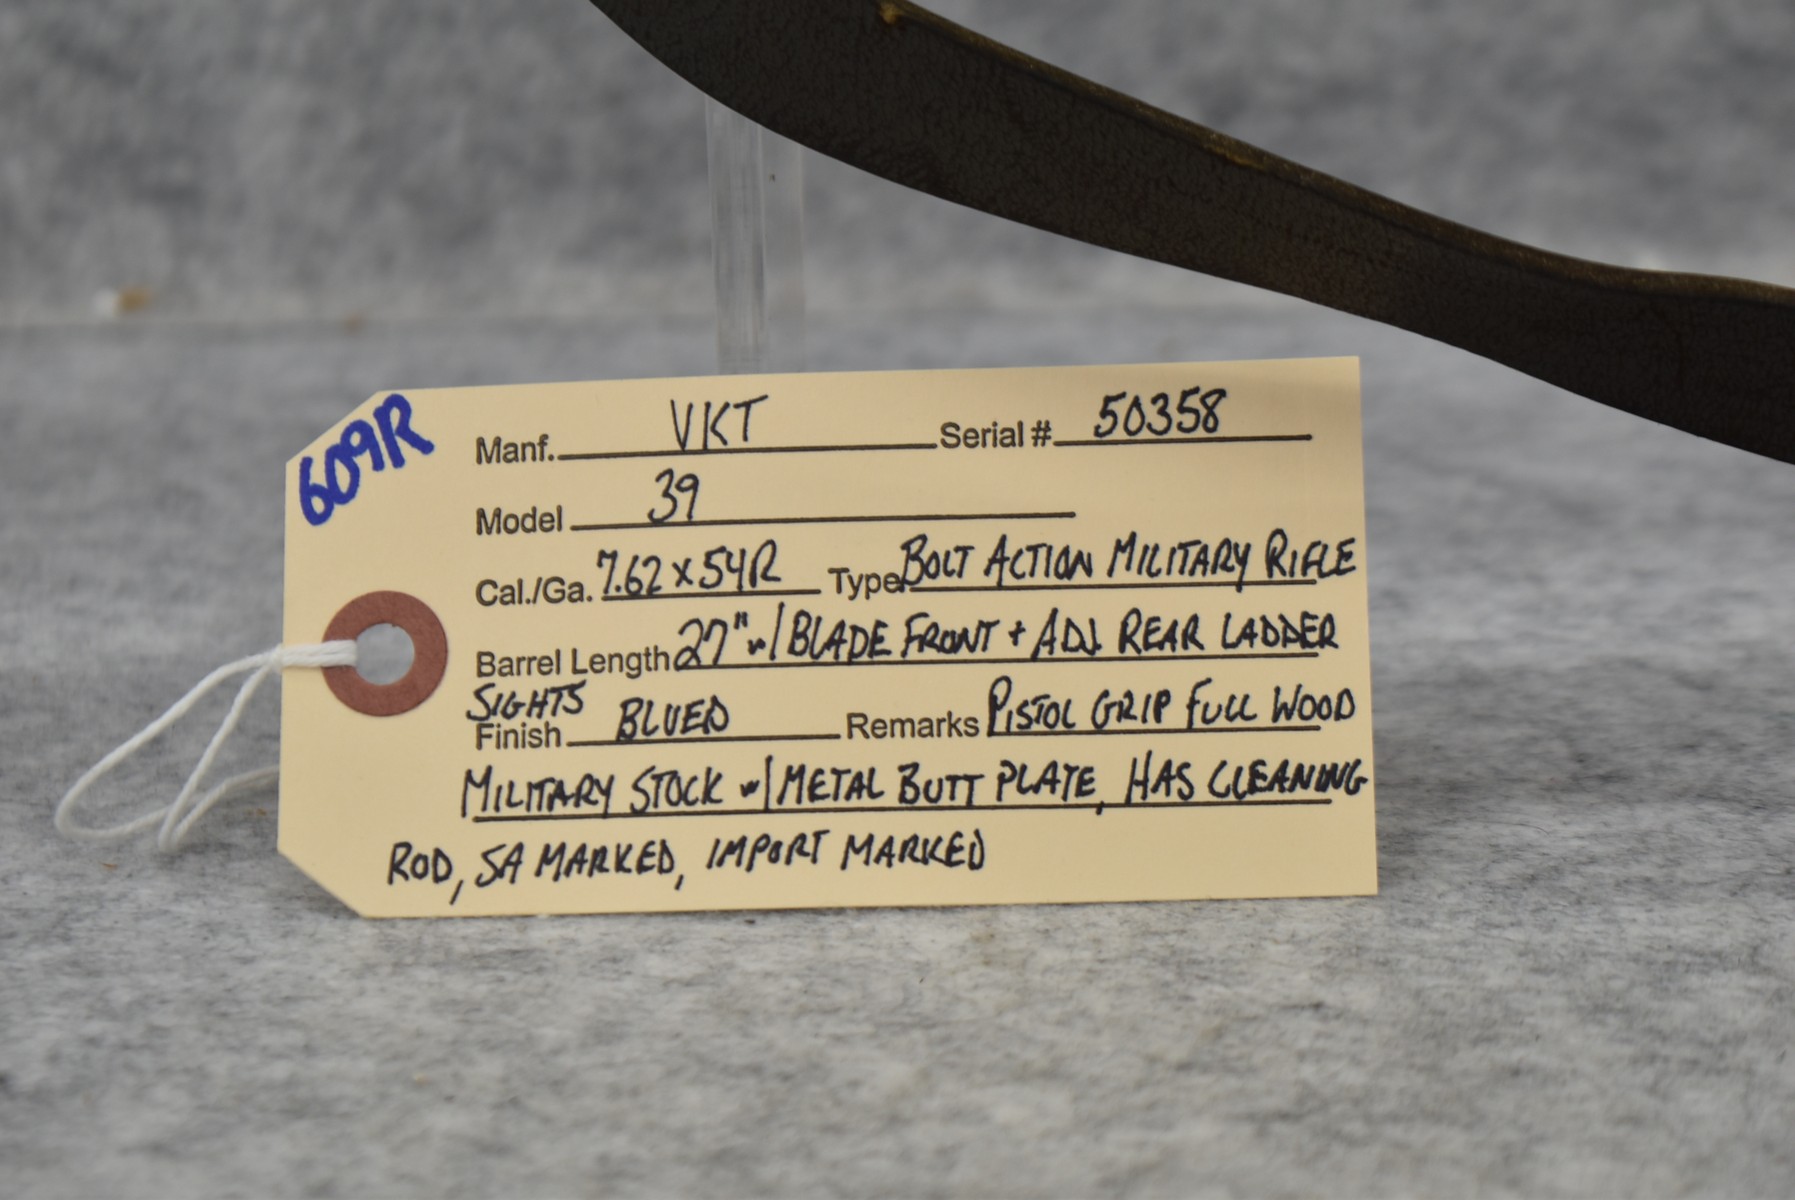 609R
Manf. VKT Serial # 50358
Model 39
Cal./Ga. 7.62 x 54R Type BOLT ACTION MILITARY RIFLE
Barrel Length 27" w/ BLADE FRONT + ADJ. REAR LADDER
SIGHTS
Finish BLUED Remarks PISTOL GRIP FULL WOOD
MILITARY STOCK w/ METAL BUTT PLATE, HAS CLEANING
ROD, SA MARKED, IMPORT MARKED